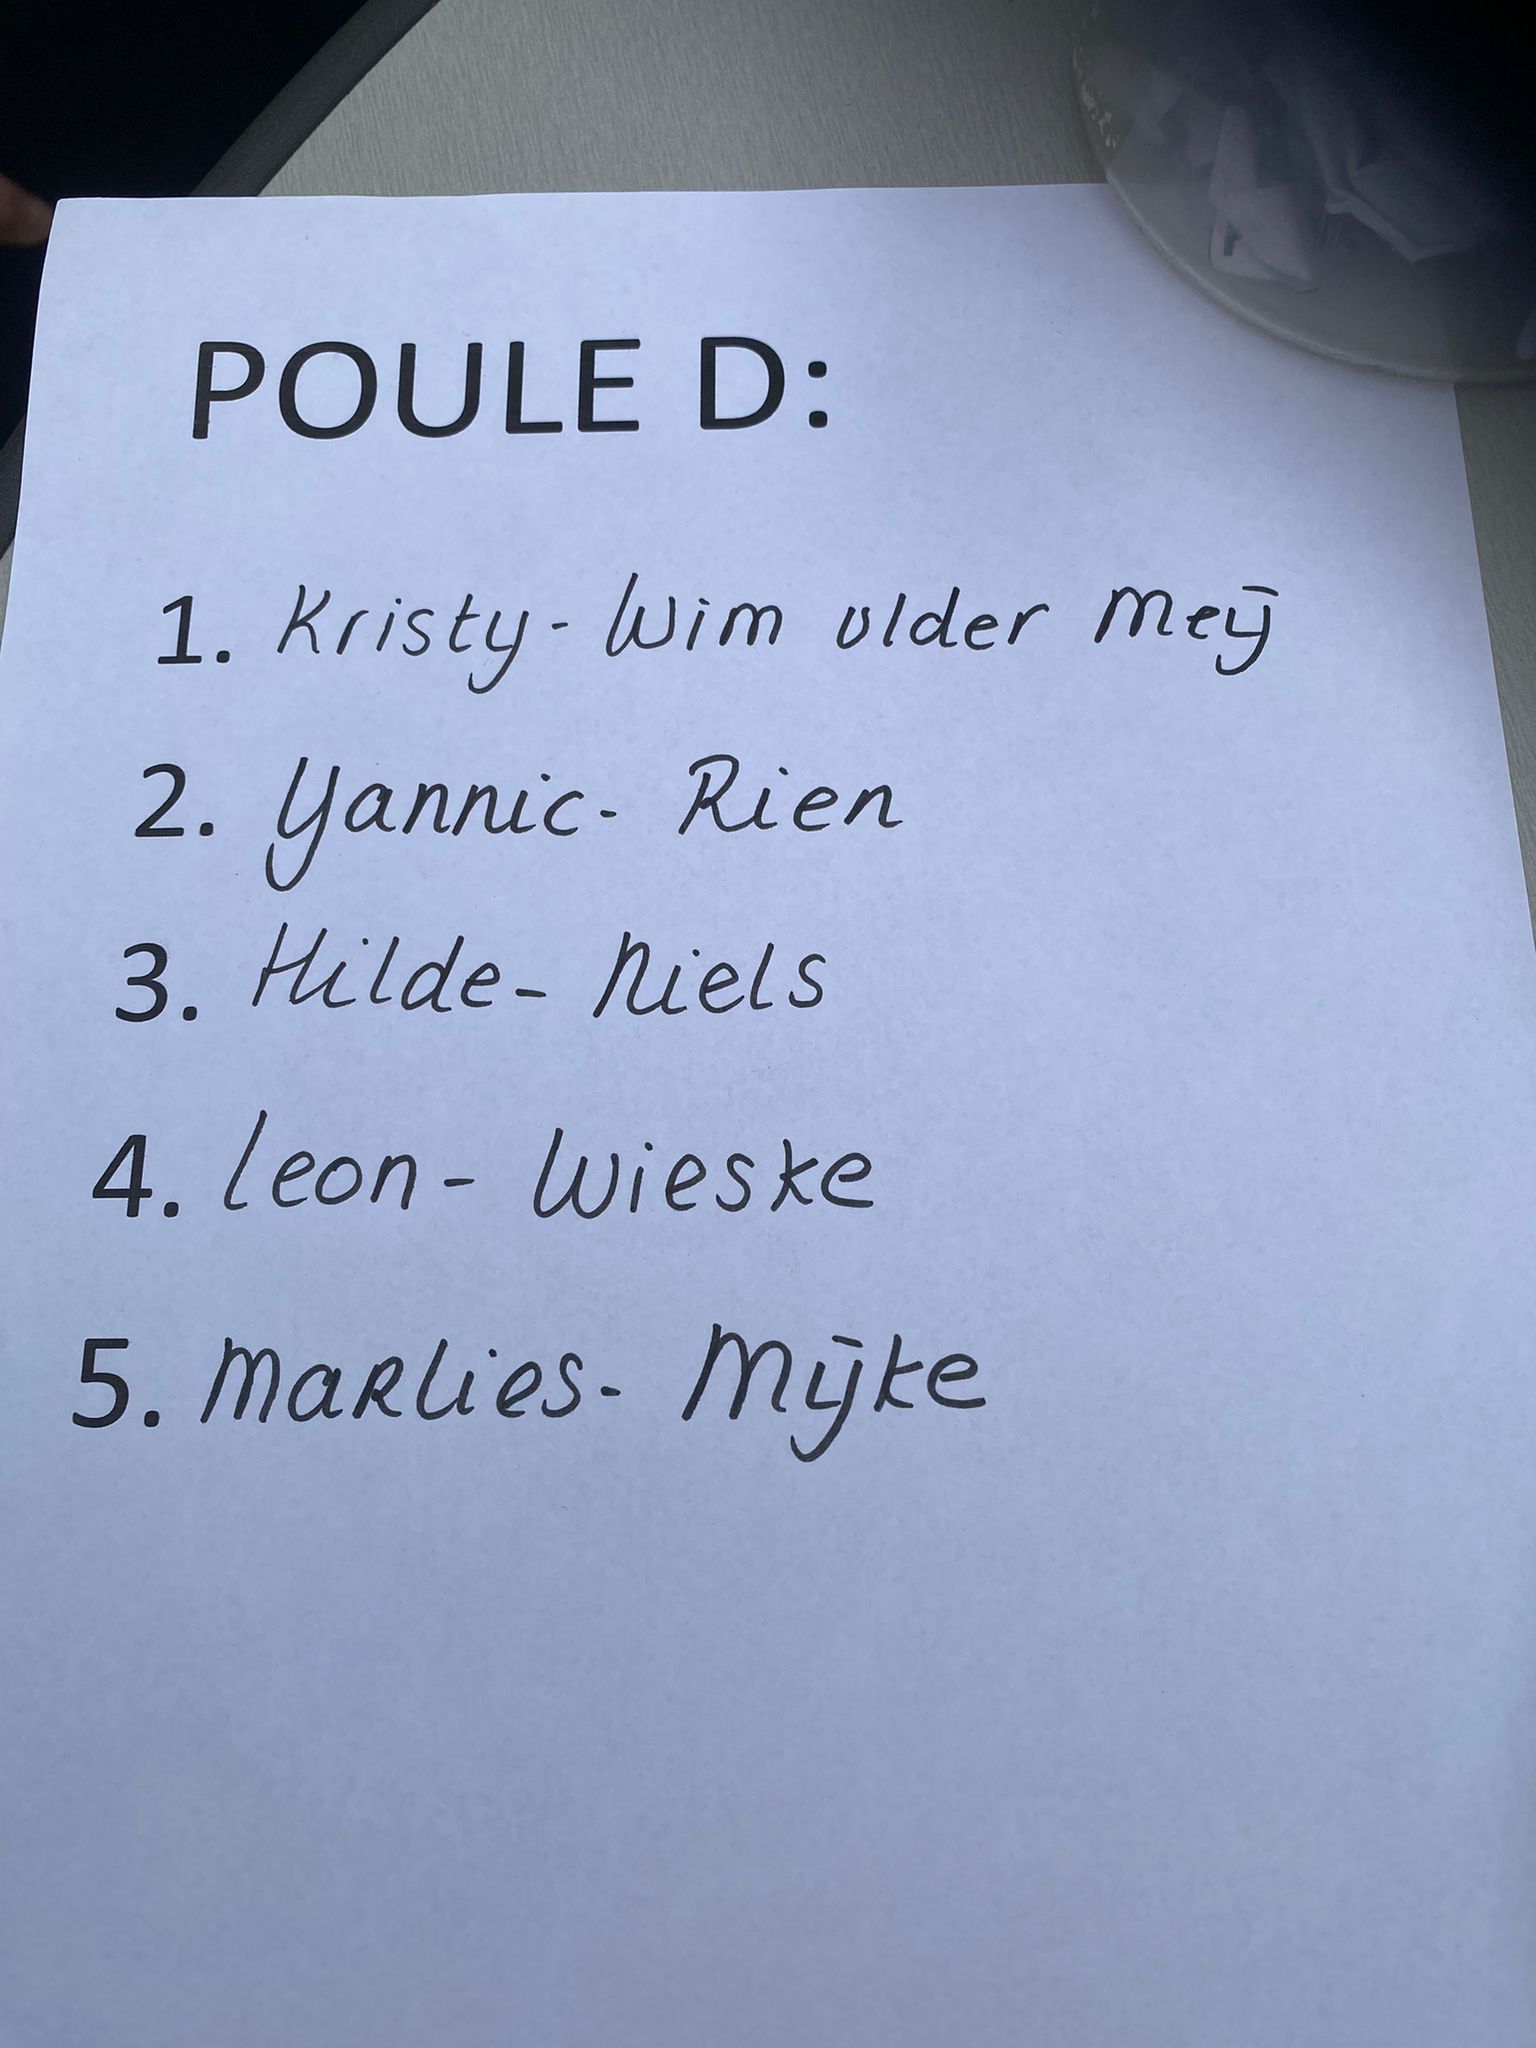 POULE D:
1. Kristy- Wim older Meij
2. Yannic- Rien
3. Hilde- Niels
4. Leon- Wieske
5. Marlies- Mijke